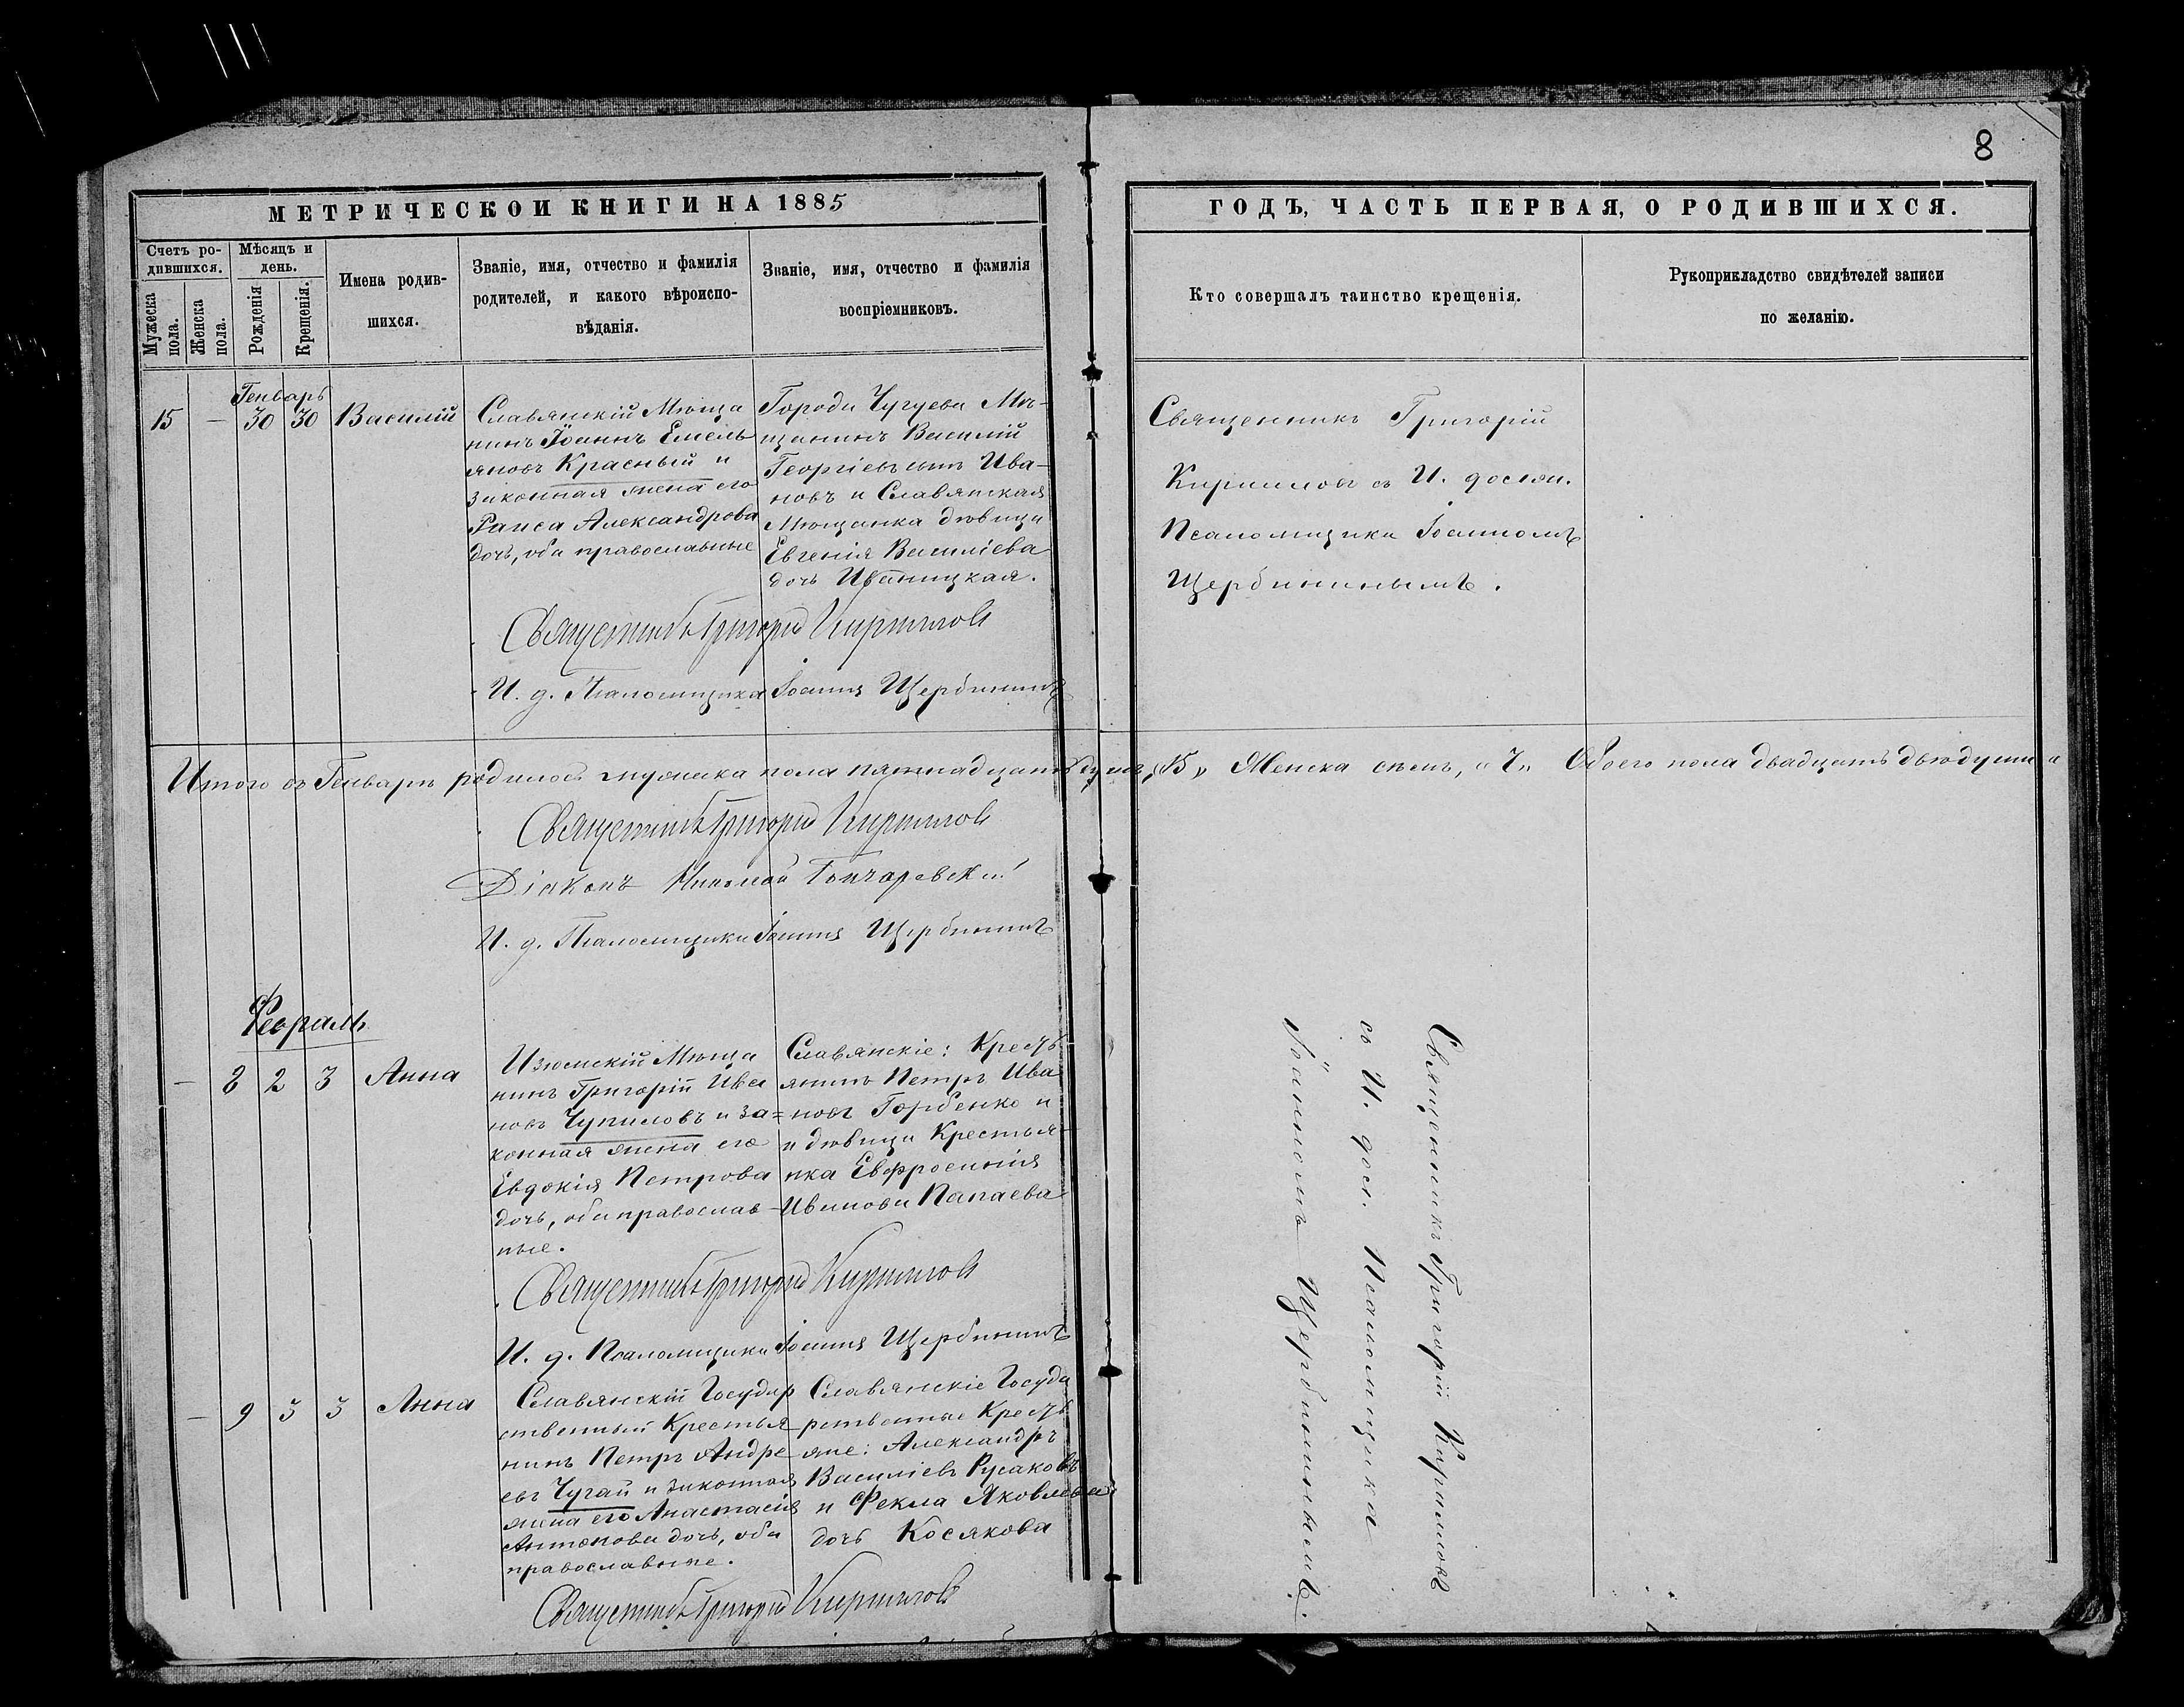 8
МЕТРИЧЕСКОЙ КНИГИ НА 1885
ГОДЪ, ЧАСТЬ ПЕРВАЯ, О РОДИВШИХСЯ.
Счетъ ро-
дившихся.
Мужеска
пола.
Женска
пола.
Мѣсяцъ и
день.
Рожденія
Крещенія.
Имена родив-
шихся.
Званіе, имя, отчество и фамилія
родителей, и какого вѣроиспо-
вѣданія.
Званіе, имя, отчество и фамилія
воспріемниковъ.
Кто совершалъ таинство крещенія.
Рукоприкладство свидѣтелей записи
по желанію.
Генварь
15 — 30 30 Василій
Славянскій Мѣща
нинъ Іоаннъ Емель
яновъ Красный и
законная жена его
Раиса Александрова
дочь, оба православные
Города Чугуева Мѣ-
щанинъ Василій
Георгіевъ сынъ Ива-
новъ и Славянская
Мѣщанка дѣвица
Евгенія Василіева
дочь Иваницкая.
Священникъ Григорій
Кириллов съ И. должн.
Псаломщика Іоанномъ
Щербининымъ.
Священникъ Григорій Кириллов
И. д. Псаломщика Іоаннъ Щербининъ
Итого въ Генварѣ родилось мужеска пола пятнадцать душъ, „15„ Женска семь, „7„ Обоего пола двадцать двѣ души
Священникъ Григорій Кириллов
Діаконъ Николай Гончаревскій
И. д. Псаломщика Іоаннъ Щербининъ
Февраль
— 8 2 3 Анна
Изюмскій Мѣща
нинъ Григорій Ива
новъ Чупиловъ и за=
конная жена его
Евдокія Петрова
дочь, оба православ-
ные.
Славянскіе: Кресть
янинъ Петръ Ива
новъ Горбенко и
и дѣвица Крестья-
нка Евфросинія
Иванова Папаева
Священникъ Григорій Кириллов
И. д. Псаломщика Іоаннъ Щербининъ
— 9 3 3 Анна
Славянскій Государ
ственный Крестья
нинъ Петръ Андре
евъ Чугай и законная
жена его Анастасія
Антонова дочь, оба
православные.
Славянскіе Госуда
рственные Кресть
яне: Александръ
Василіевъ Русаковъ
и Фекла Яковлева
дочь Косякова
Священникъ Григорій Кириллов
Священникъ Григорій Кирилловъ
съ И. долж. Псаломщика
Іоанномъ Щербининымъ.